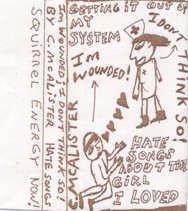 GETTING IT OUT OF
MY
SYSTEM
I DON'T THINK SO!
I'M
WOUNDED!
HATE
SONGS
ABOUT THE
GIRL
I LOVED
C.MCALISTER
I'M WOUNDED/I DON'T THINK SO!
BY C.MCALISTER HATE SONGS
SQUIRREL ENERGY NOW!